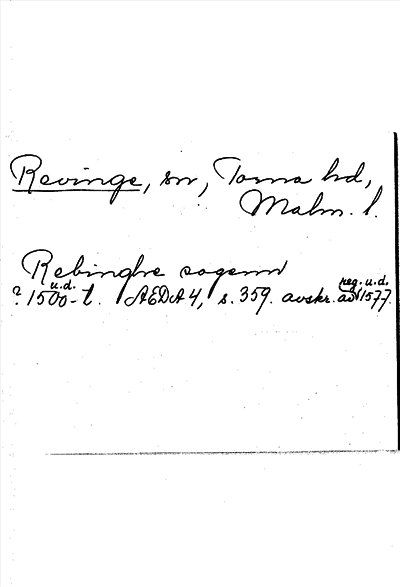 Revinge, sn, Torna hd,
Malm. l.
Rebinghe sogenn
u.d. reg. u.d.
? 1500-t. ÆDA 4, s. 359. avskr. av 1577.